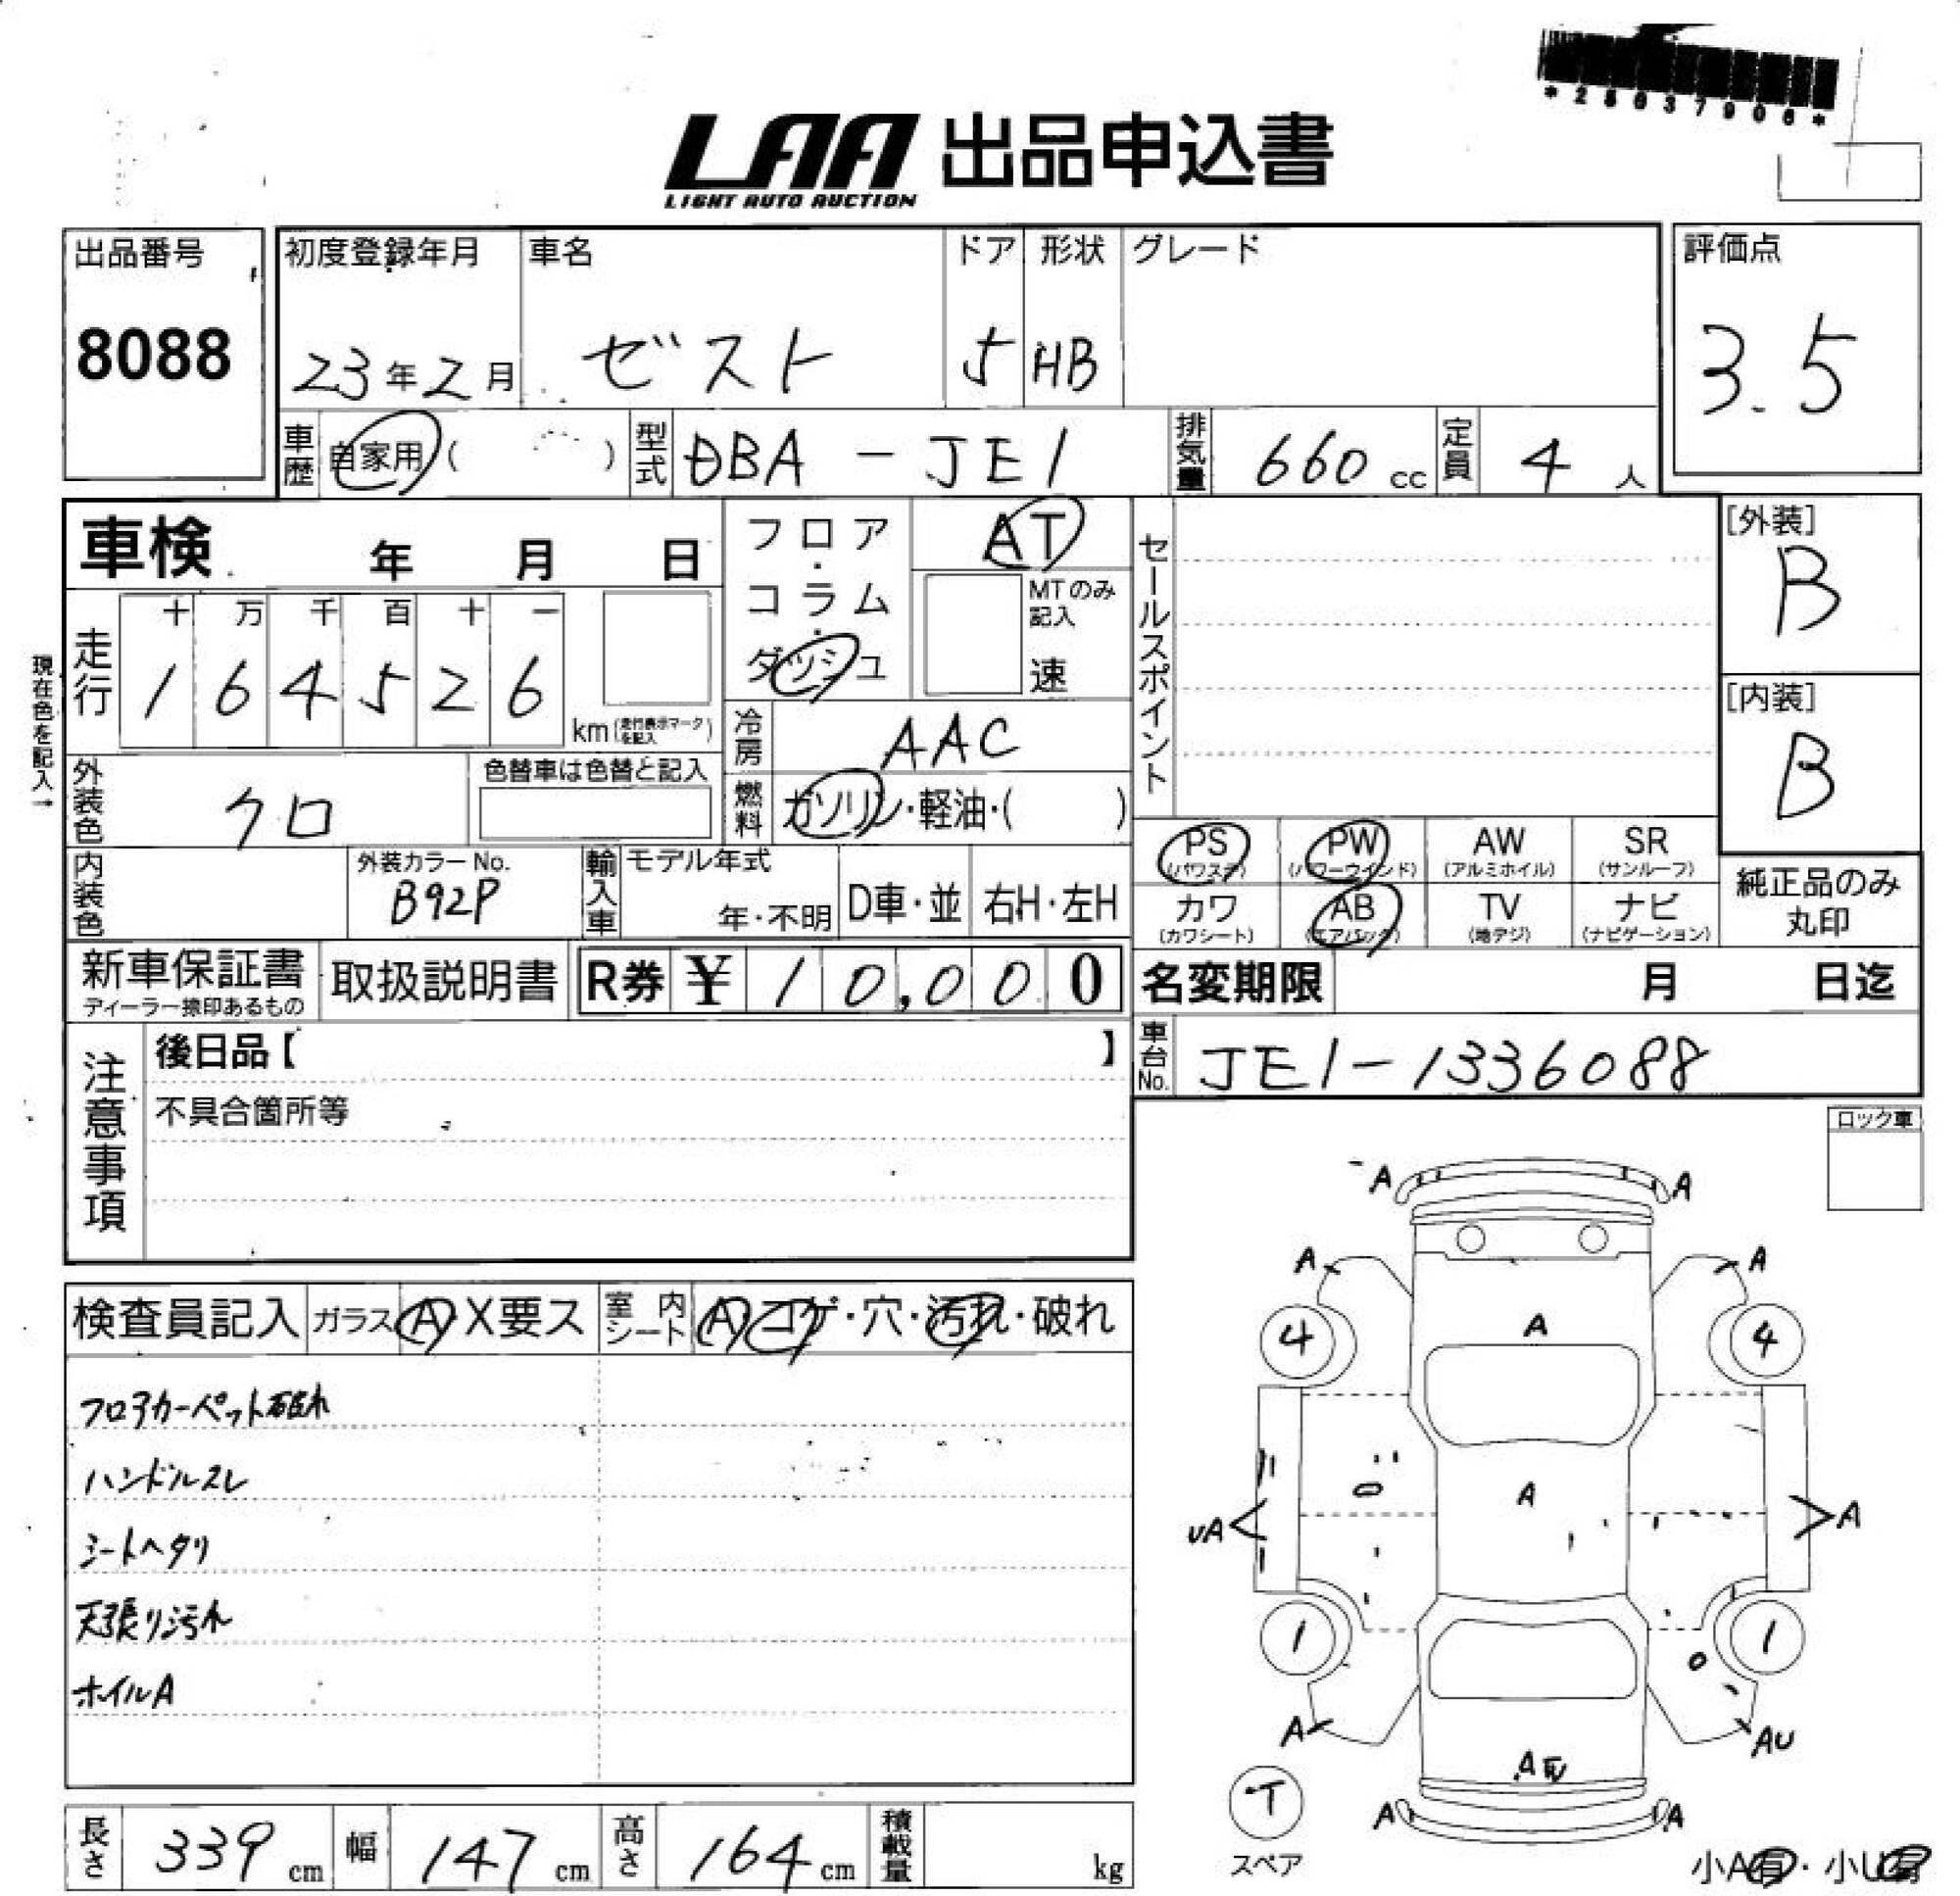 *25037906*
LAA 出品申込書
LIGHT AUTO AUCTION
出品番号
8088
初度登録年月
23年2月
車名
ゼスト
ドア
5
形状
HB
グレード
評価点
3.5
車歴 自家用( )
型式 DBA-JE1
排気量 660cc
定員 4人
車検 年 月 日
フロア・コラム・ダッシュ
AT
MTのみ記入
速
セールスポイント
[外装]
B
[内装]
B
現在色を記入→
走行
十 万 千 百 十 一
1 6 4 5 2 6
km(走行表示マークを記入)
冷房 AAC
燃料 ガソリン・軽油・( )
外装色 クロ
色替車は色替と記入
内装色
外装カラーNo.
B92P
輸入車 モデル年式
年・不明
D車・並 右H・左H
PS
(パワステ)
PW
(パワーウインド)
AW
(アルミホイル)
SR
(サンルーフ)
カワ
(カワシート)
AB
(エアバック)
TV
(地デジ)
ナビ
(ナビゲーション)
純正品のみ
丸印
新車保証書
ディーラー捺印あるもの
取扱説明書
R券 ¥ 10,000
名変期限 月 日迄
車台No. JE1-1336088
注意事項
後日品【 】
不具合箇所等
ロック車
検査員記入 ガラス A X要ス
室内シート A・コゲ・穴・汚れ・破れ
フロアカーペット破れ
ハンドルスレ
シートヘタリ
天張り汚れ
ホイルA
A A
A A
4 A 4
UA A A
1 1
A AU
A
T
スペア
A A
小A有・小U有
長さ 339cm
幅 147cm
高さ 164cm
積載量 kg